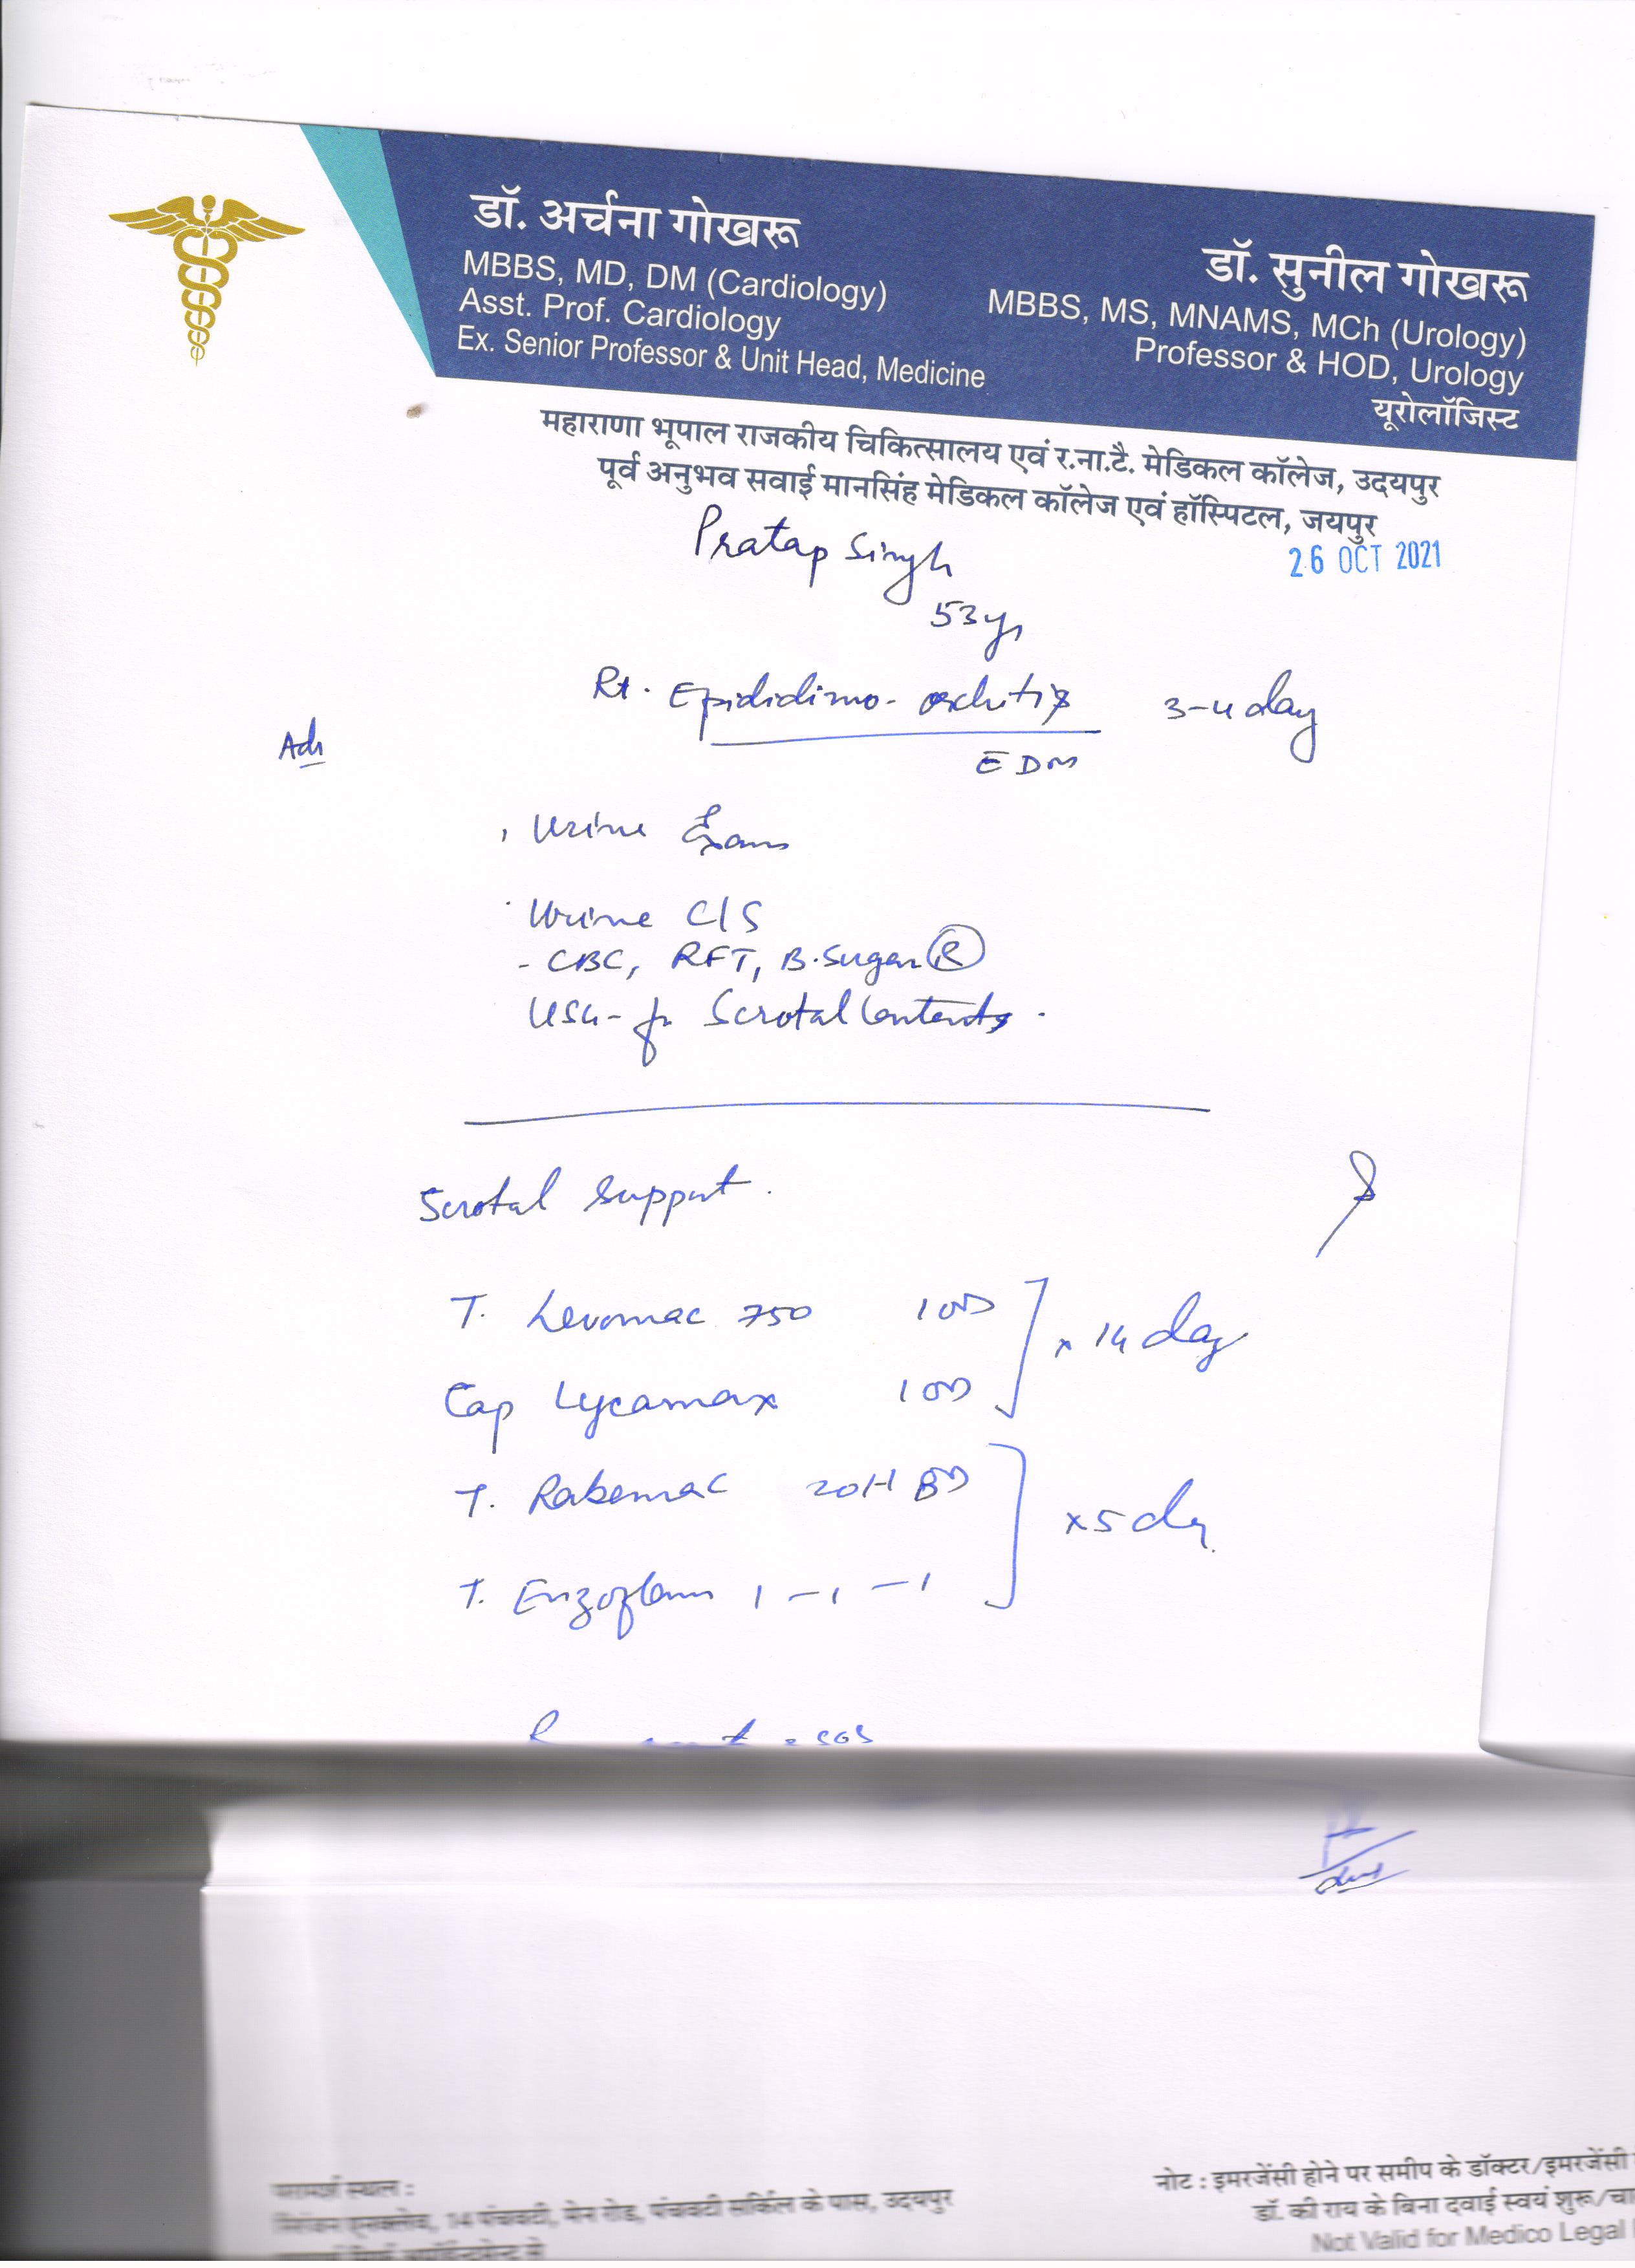 डॉ. अर्चना गोखरू
MBBS, MD, DM (Cardiology)
Asst. Prof. Cardiology
Ex. Senior Professor & Unit Head, Medicine
डॉ. सुनील गोखरू
MBBS, MS, MNAMS, MCh (Urology)
Professor & HOD, Urology
यूरोलॉजिस्ट
महाराणा भूपाल राजकीय चिकित्सालय एवं र.ना.टै. मेडिकल कॉलेज, उदयपुर
पूर्व अनुभव सवाई मानसिंह मेडिकल कॉलेज एवं हॉस्पिटल, जयपुर
26 OCT 2021
Pratap Singh
53yr
Rt. Epididimo-orchitis 3-4 day
DM
Adv
Urine Exam
Urine C/S
- CBC, RFT, B.Sugar (R)
USG- for Scrotal Contents.
Scrotal Support.
T. Levomac 750 1 OD
Cap Lycamax 1 OD
x 14 day
T. Rabemac 20 BD
T. Enzoflam 1 - 1 - 1
x 5 day
sos
परामर्श स्थल :
14 पंचवटी, मेन रोड, पंचवटी सर्किल के पास, उदयपुर
नोट : इमरजेंसी होने पर समीप के डॉक्टर/इमरजेंसी
डॉ. की राय के बिना दवाई स्वयं शुरू/
Not Valid for Medico Legal